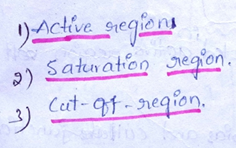 1) Active regions
2) Saturation region.
3) Cut-off-region.